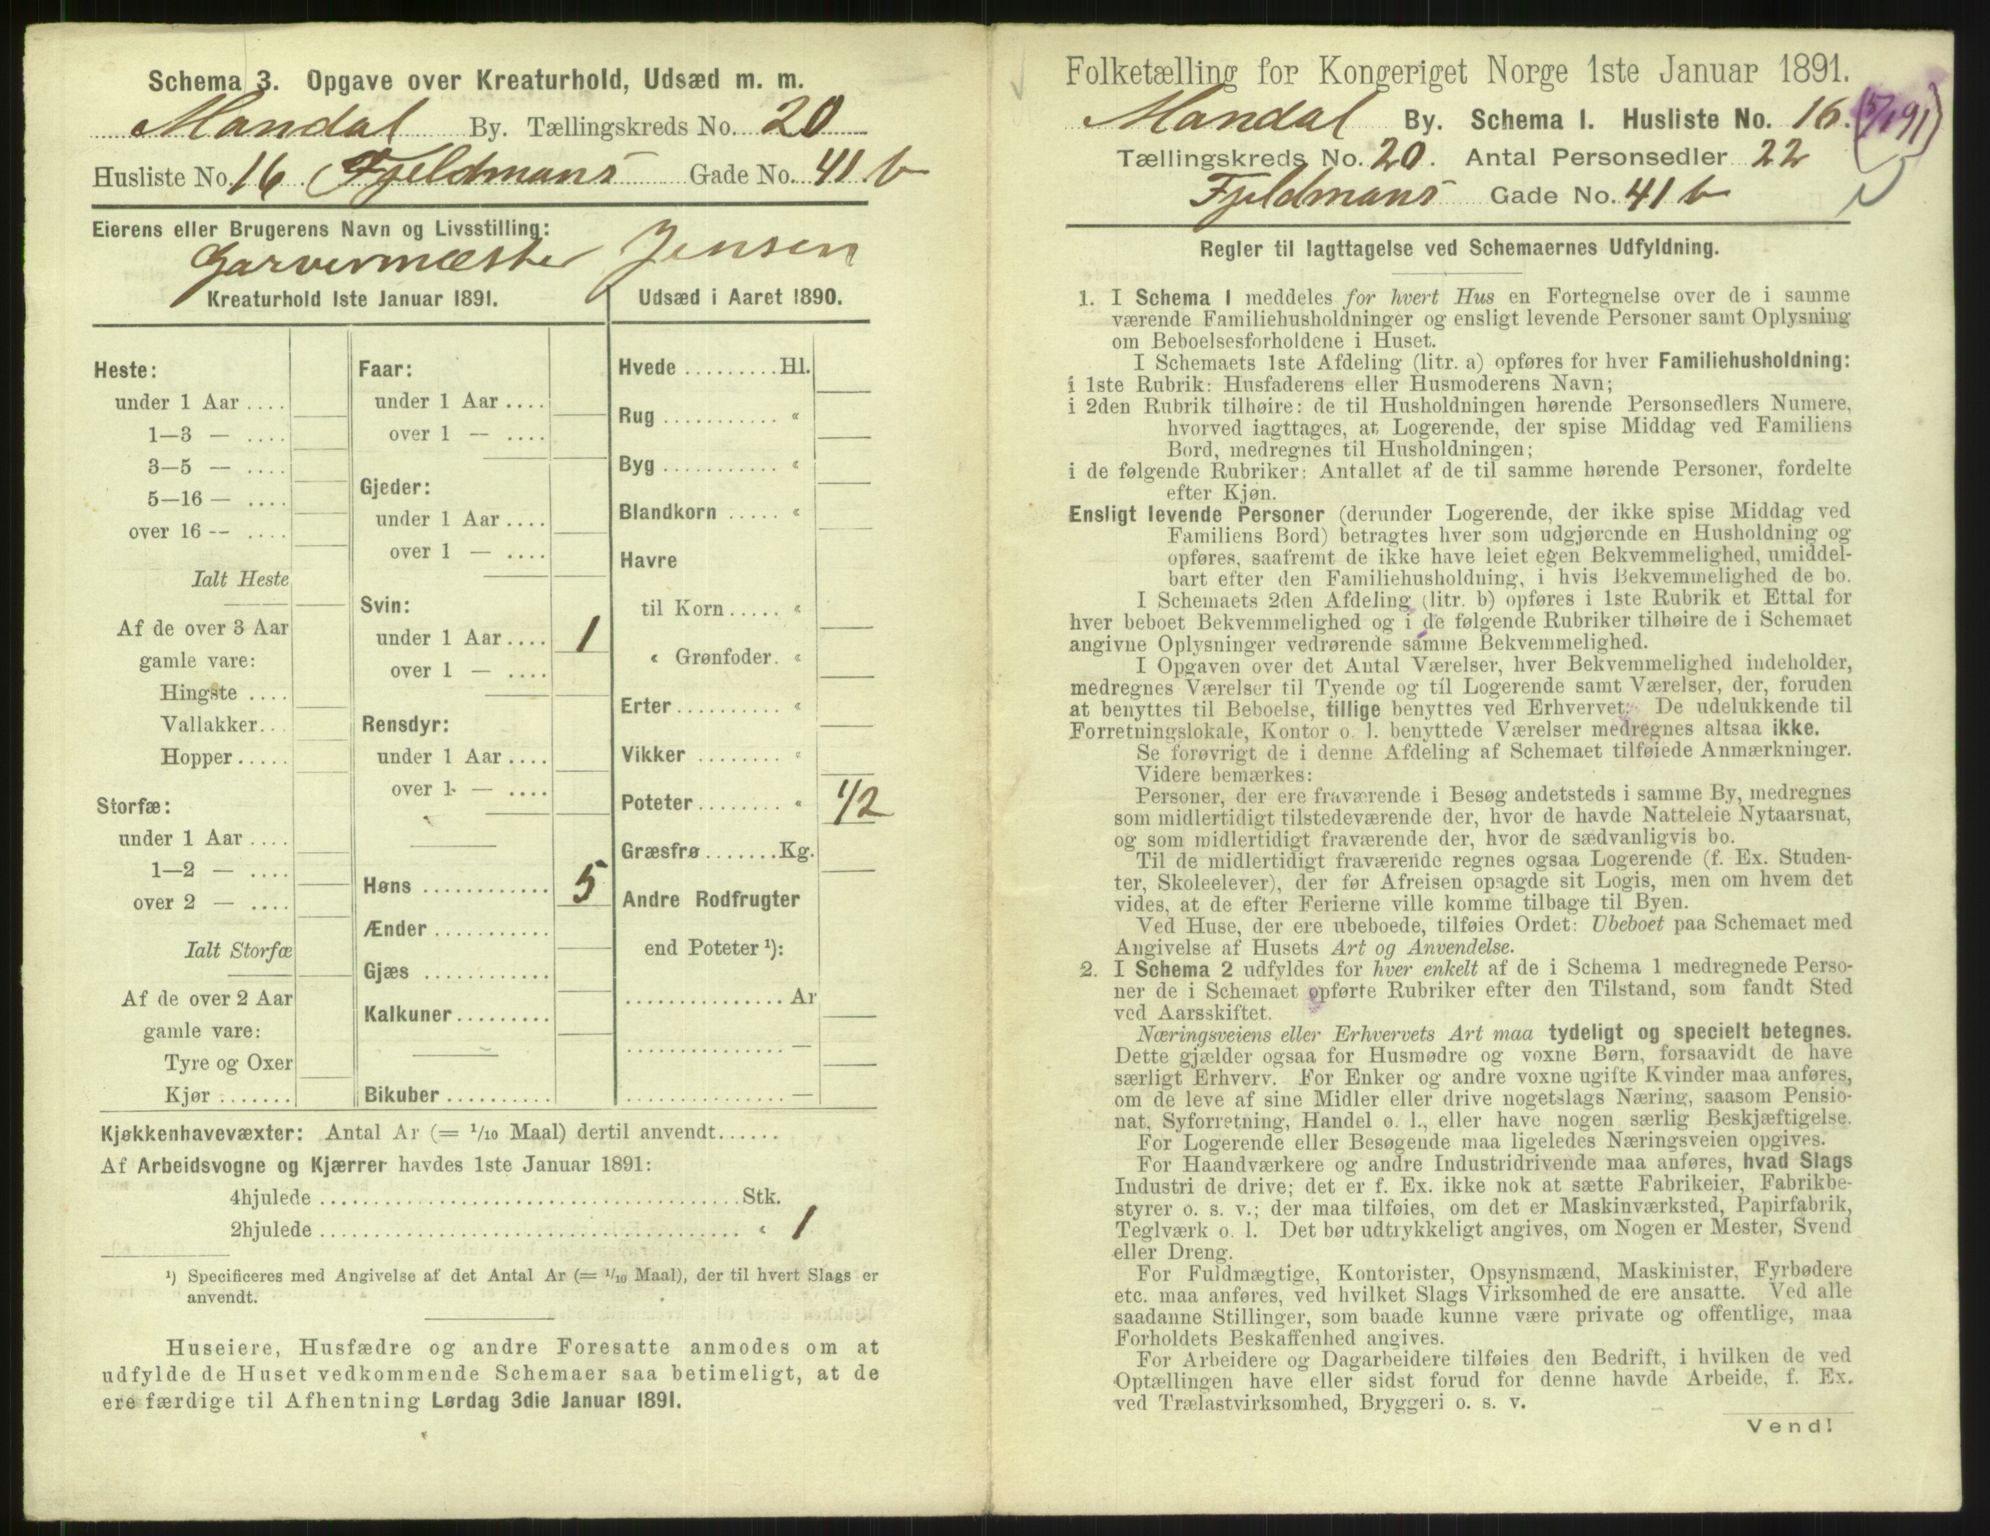 Schema 3. Opgave over Kreaturhold, Udsæd m. m.
Mandal By. Tællingskreds No. 20
Husliste No. 16 Fjeldmans Gade No. 41 b
Eierens eller Brugerens Navn og Livsstilling:
Garvermæster Jensen
Kreaturhold 1ste Januar 1891.
Udsæd i Aaret 1890.
Heste:
under 1 Aar ....
1—3 — ....
3—5 — ....
5—16 — ....
over 16 — ....
Ialt Heste
Af de over 3 Aar
gamle vare:
Hingste ....
Vallakker...
Hopper.....
Storfæ:
under 1 Aar ....
1—2 — ....
over 2 — ....
Ialt Storfæ
Af de over 2 Aar
gamle vare:
Tyre og Oxer
Kjør .......
Faar:
under 1 Aar ....
over 1 — ....
Gjeder:
under 1 Aar ....
over 1 — ....
Svin:
under 1 Aar .... 1
over 1 — ....
Rensdyr:
under 1 Aar ....
over 1 — ....
Høns ............ 5
Ænder ...........
Gjæs ............
Kalkuner.........
Bikuber ..........
Hvede .........Hl.
Rug ........... «
Byg ........... «
Blandkorn ..... «
Havre
til Korn..... «
« Grønfoder. «
Erter.......... «
Vikker ........ «
Poteter........ « 1/2
Græsfrø.......Kg.
Andre Rodfrugter
end Poteter ¹):
...............Ar
............... —
............... —
Kjøkkenhavevæxter: Antal Ar (= 1/10 Maal) dertil anvendt......
Af Arbeidsvogne og Kjærrer havdes 1ste Januar 1891:
4hjulede ........................................Stk.
2hjulede ........................................ « 1
¹) Specificeres med Angivelse af det Antal Ar (= 1/10 Maal), der til hvert Slags er
anvendt.
Huseiere, Husfædre og andre Foresatte anmodes om at
udfylde de Huset vedkommende Schemaer saa betimeligt, at de
ere færdige til Afhentning Lørdag 3die Januar 1891.
Folketælling for Kongeriget Norge 1ste Januar 1891.
Mandal By. Schema 1. Husliste No. 16.
Tællingskreds No. 20. Antal Personsedler 22
Fjeldmans Gade No. 41 b
Regler til Iagttagelse ved Schemaernes Udfyldning.
1. I Schema 1 meddeles for hvert Hus en Fortegnelse over de i samme
værende Familiehusholdninger og ensligt levende Personer samt Oplysning
om Beboelsesforholdene i Huset.
I Schemaets 1ste Afdeling (litr. a) opføres for hver Familiehusholdning:
i 1ste Rubrik: Husfaderens eller Husmoderens Navn;
i 2den Rubrik tilhøire: de til Husholdningen hørende Personsedlers Numere,
hvorved iagttages, at Logerende, der spise Middag ved Familiens
Bord, medregnes til Husholdningen;
i de følgende Rubriker: Antallet af de til samme hørende Personer, fordelte
efter Kjøn.
Ensligt levende Personer (derunder Logerende, der ikke spise Middag ved
Familiens Bord) betragtes hver som udgjørende en Husholdning og
opføres, saafremt de ikke have leiet egen Bekvemmelighed, umiddel-
bart efter den Familiehusholdning, i hvis Bekvemmelighed de bo.
I Schemaets 2den Afdeling (litr. b) opføres i 1ste Rubrik et Ettal for
hver beboet Bekvemmelighed og i de følgende Rubriker tilhøire de i Schemaet
angivne Oplysninger vedrørende samme Bekvemmelighed.
I Opgaven over det Antal Værelser, hver Bekvemmelighed indeholder,
medregnes Værelser til Tyende og til Logerende samt Værelser, der, foruden
at benyttes til Beboelse, tillige benyttes ved Erhvervet. De udelukkende til
Forretningslokale, Kontor o. l. benyttede Værelser medregnes altsaa ikke.
Se forøvrigt de i denne Afdeling af Schemaet tilføiede Anmærkninger.
Videre bemærkes:
Personer, der ere fraværende i Besøg andetsteds i samme By, medregnes
som midlertidigt tilstedeværende der, hvor de havde Natteleie Nytaarsnat,
og som midlertidigt fraværende der, hvor de sædvanligvis bo.
Til de midlertidigt fraværende regnes ogsaa Logerende (f. Ex. Studen-
ter, Skoleelever), der før Afreisen opsagde sit Logis, men om hvem det
vides, at de efter Ferierne ville komme tilbage til Byen.
Ved Huse, der ere ubeboede, tilføies Ordet: Ubeboet paa Schemaet med
Angivelse af Husets Art og Anvendelse.
2. I Schema 2 udfyldes for hver enkelt af de i Schema 1 medregnede Perso-
ner de i Schemaet opførte Rubriker efter den Tilstand, som fandt Sted
ved Aarsskiftet.
Næringsveiens eller Erhvervets Art maa tydeligt og specielt betegnes.
Dette gjælder ogsaa for Husmødre og voxne Børn, forsaavidt de have
særligt Erhverv. For Enker og andre voxne ugifte Kvinder maa anføres,
om de leve af sine Midler eller drive nogetslags Næring, saasom Pensio-
nat, Syforretning, Handel o. l., eller have nogen særlig Beskjæftigelse.
For Logerende eller Besøgende maa ligeledes Næringsveien opgives.
For Haandværkere og andre Industridrivende maa anføres, hvad Slags
Industri de drive; det er f. Ex. ikke nok at sætte Fabrikeier, Fabrikbe-
styrer o. s. v.; der maa tilføies, om det er Maskinværksted, Papirfabrik,
Teglværk o. l. Det bør udtrykkeligt angives, om Nogen er Mester, Svend
eller Dreng.
For Fuldmægtige, Kontorister, Opsynsmænd, Maskinister, Fyrbødere
etc. maa anføres, ved hvilket Slags Virksomhed de ere ansatte. Ved alle
saadanne Stillinger, som baade kunne være private og offentlige, maa
Forholdets Beskaffenhed angives.
For Arbeidere og Dagarbeidere tilføies den Bedrift, i hvilken de ved
Optællingen have eller sidst forud for denne havde Arbeide, f. Ex.
ved Trælastvirksomhed, Bryggeri o. s. v.
Vend!